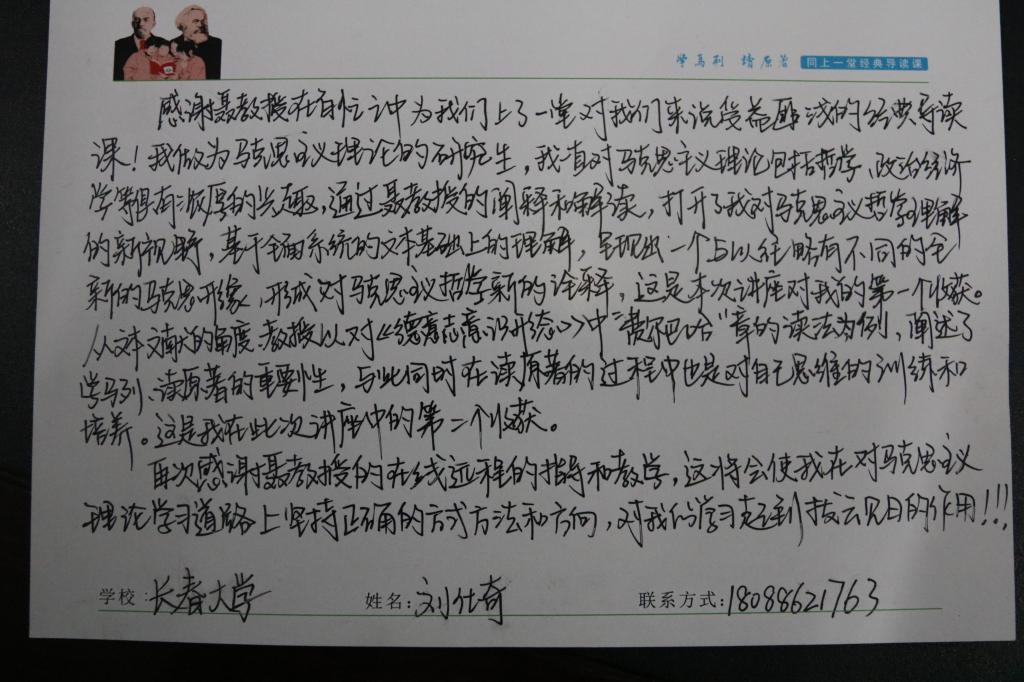 学马列 读原著 同上一堂经典导读课
感谢聂教授在百忙之中为我们上了一堂对我们来说受益匪浅的经典导读
课！我做为马克思主义理论的研究生，我一直对马克思主义理论包括哲学、政治经济
学等很有浓厚的兴趣，通过聂教授的阐释和解读，打开了我对马克思主义哲学理解
的新视野，基于全面系统的文本基础上的理解，呈现出一个与以往略有不同的全
新的马克思形象，形成对马克思主义哲学新的诠释，这是本次讲座对我的第一个收获。
从文本文献的角度教授以对《德意志意识形态》中“费尔巴哈”章的读法为例，阐述了
学马列、读原著的重要性，与此同时在读原著的过程中也是对自己思维的训练和
培养。这是我在此次讲座中的第二个收获。
再次感谢聂教授的在线远程的指导和教学，这将会使我在对马克思主义
理论学习道路上坚持正确的方式方法和方向，对我们学习起到拨云见日的作用！！！
学校：长春大学 姓名：刘仕奇 联系方式：18088621763